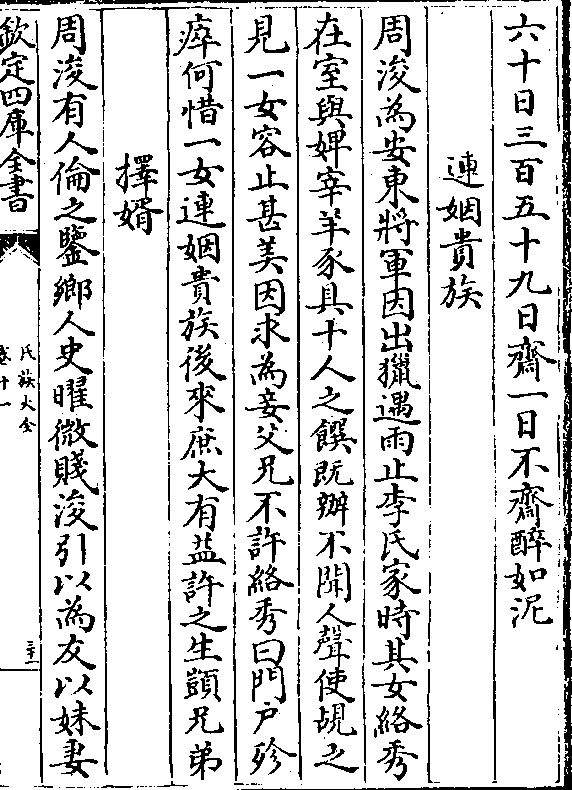 六十日三百五十九日齋一日不齋醉如泥
連姻貴族
周浚為安東將軍因出獵遇雨止李氏家時其女絡秀
在室與婢宰羊豕具十人之饌既辦不聞人聲使覘之
見一女容止甚美因求為妾父兄不許絡秀曰門户殄
瘁何惜一女連姻貴族後來庶大有益許之生顗兄弟
擇婿
周浚有人倫之鑒鄉人史曜微賤浚引以為友以妹妻
欽定四庫全書
氏族大全
卷十一